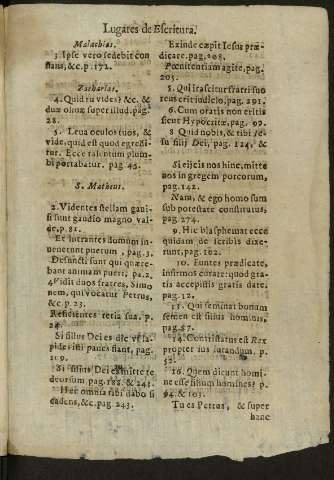 Lugares de Escritura.
Malachias.
3. Ipse vero sedebit con
flans, &c. p. 172.
Zacharias.
4. Quid tu vides? &c. &
duæ olivæ super illud. pag.
28.
5. Leva oculos tuos, &
vide, quid est quod egredi
tur. Ecce talentum plum-
bi portabatur. pag. 45.
S. Matheus.
2. Videntes stellam gavi-
si sunt gaudio magno val-
de. p. 81.
Et intrantes domum in-
venerunt puerum, pag. 3.
Defuncti sunt qui quære-
bant animam pueri, pa. 2.
4. Vidit duos fratres, Simo
nem, qui vocatur Petrus,
&c. p. 23.
Reficientes retia sua. p.
24.
Si filius Dei es dic ut la-
pides isti panes fiant, pag.
119.
Si filius Dei es mitte te
deorsum pag. 188. & 241.
Hæc omnia tibi dabo si
cadens, &c. pag. 243.
Exinde cæpit Iesus præ-
dicare. pag. 208.
Pœnitentiam agite, pag.
205.
5. Qui irascitur fratri suo
reus erit iudicio. pag. 291.
6. Cum oratis non eritis
sicut Hypocritæ, pag. 99.
8 Quid nobis, & tibi Ie-
su fili Dei, pag. 124, &
Si eijcis nos hinc, mitte
nos in gregem porcorum,
pag. 142.
Nam, & ego homo sum
sub potestate constitutus,
pag. 274.
9. Hic blasphemat ecce
quidam de scribis dixe-
runt, pag. 102.
10. Euntes prædicate,
infirmos curate: quod gra-
tis accepistis gratis date.
pag. 12.
13. Qui seminat bonum
semen est filius hominis,
pag. 87.
14. Contristatus est Rex
propter ius iurandum, p.
52.
16. Quem dicunt homi-
ne esse filium hominis? p.
94. & 103.
Tu es Petrus, & super
hanc